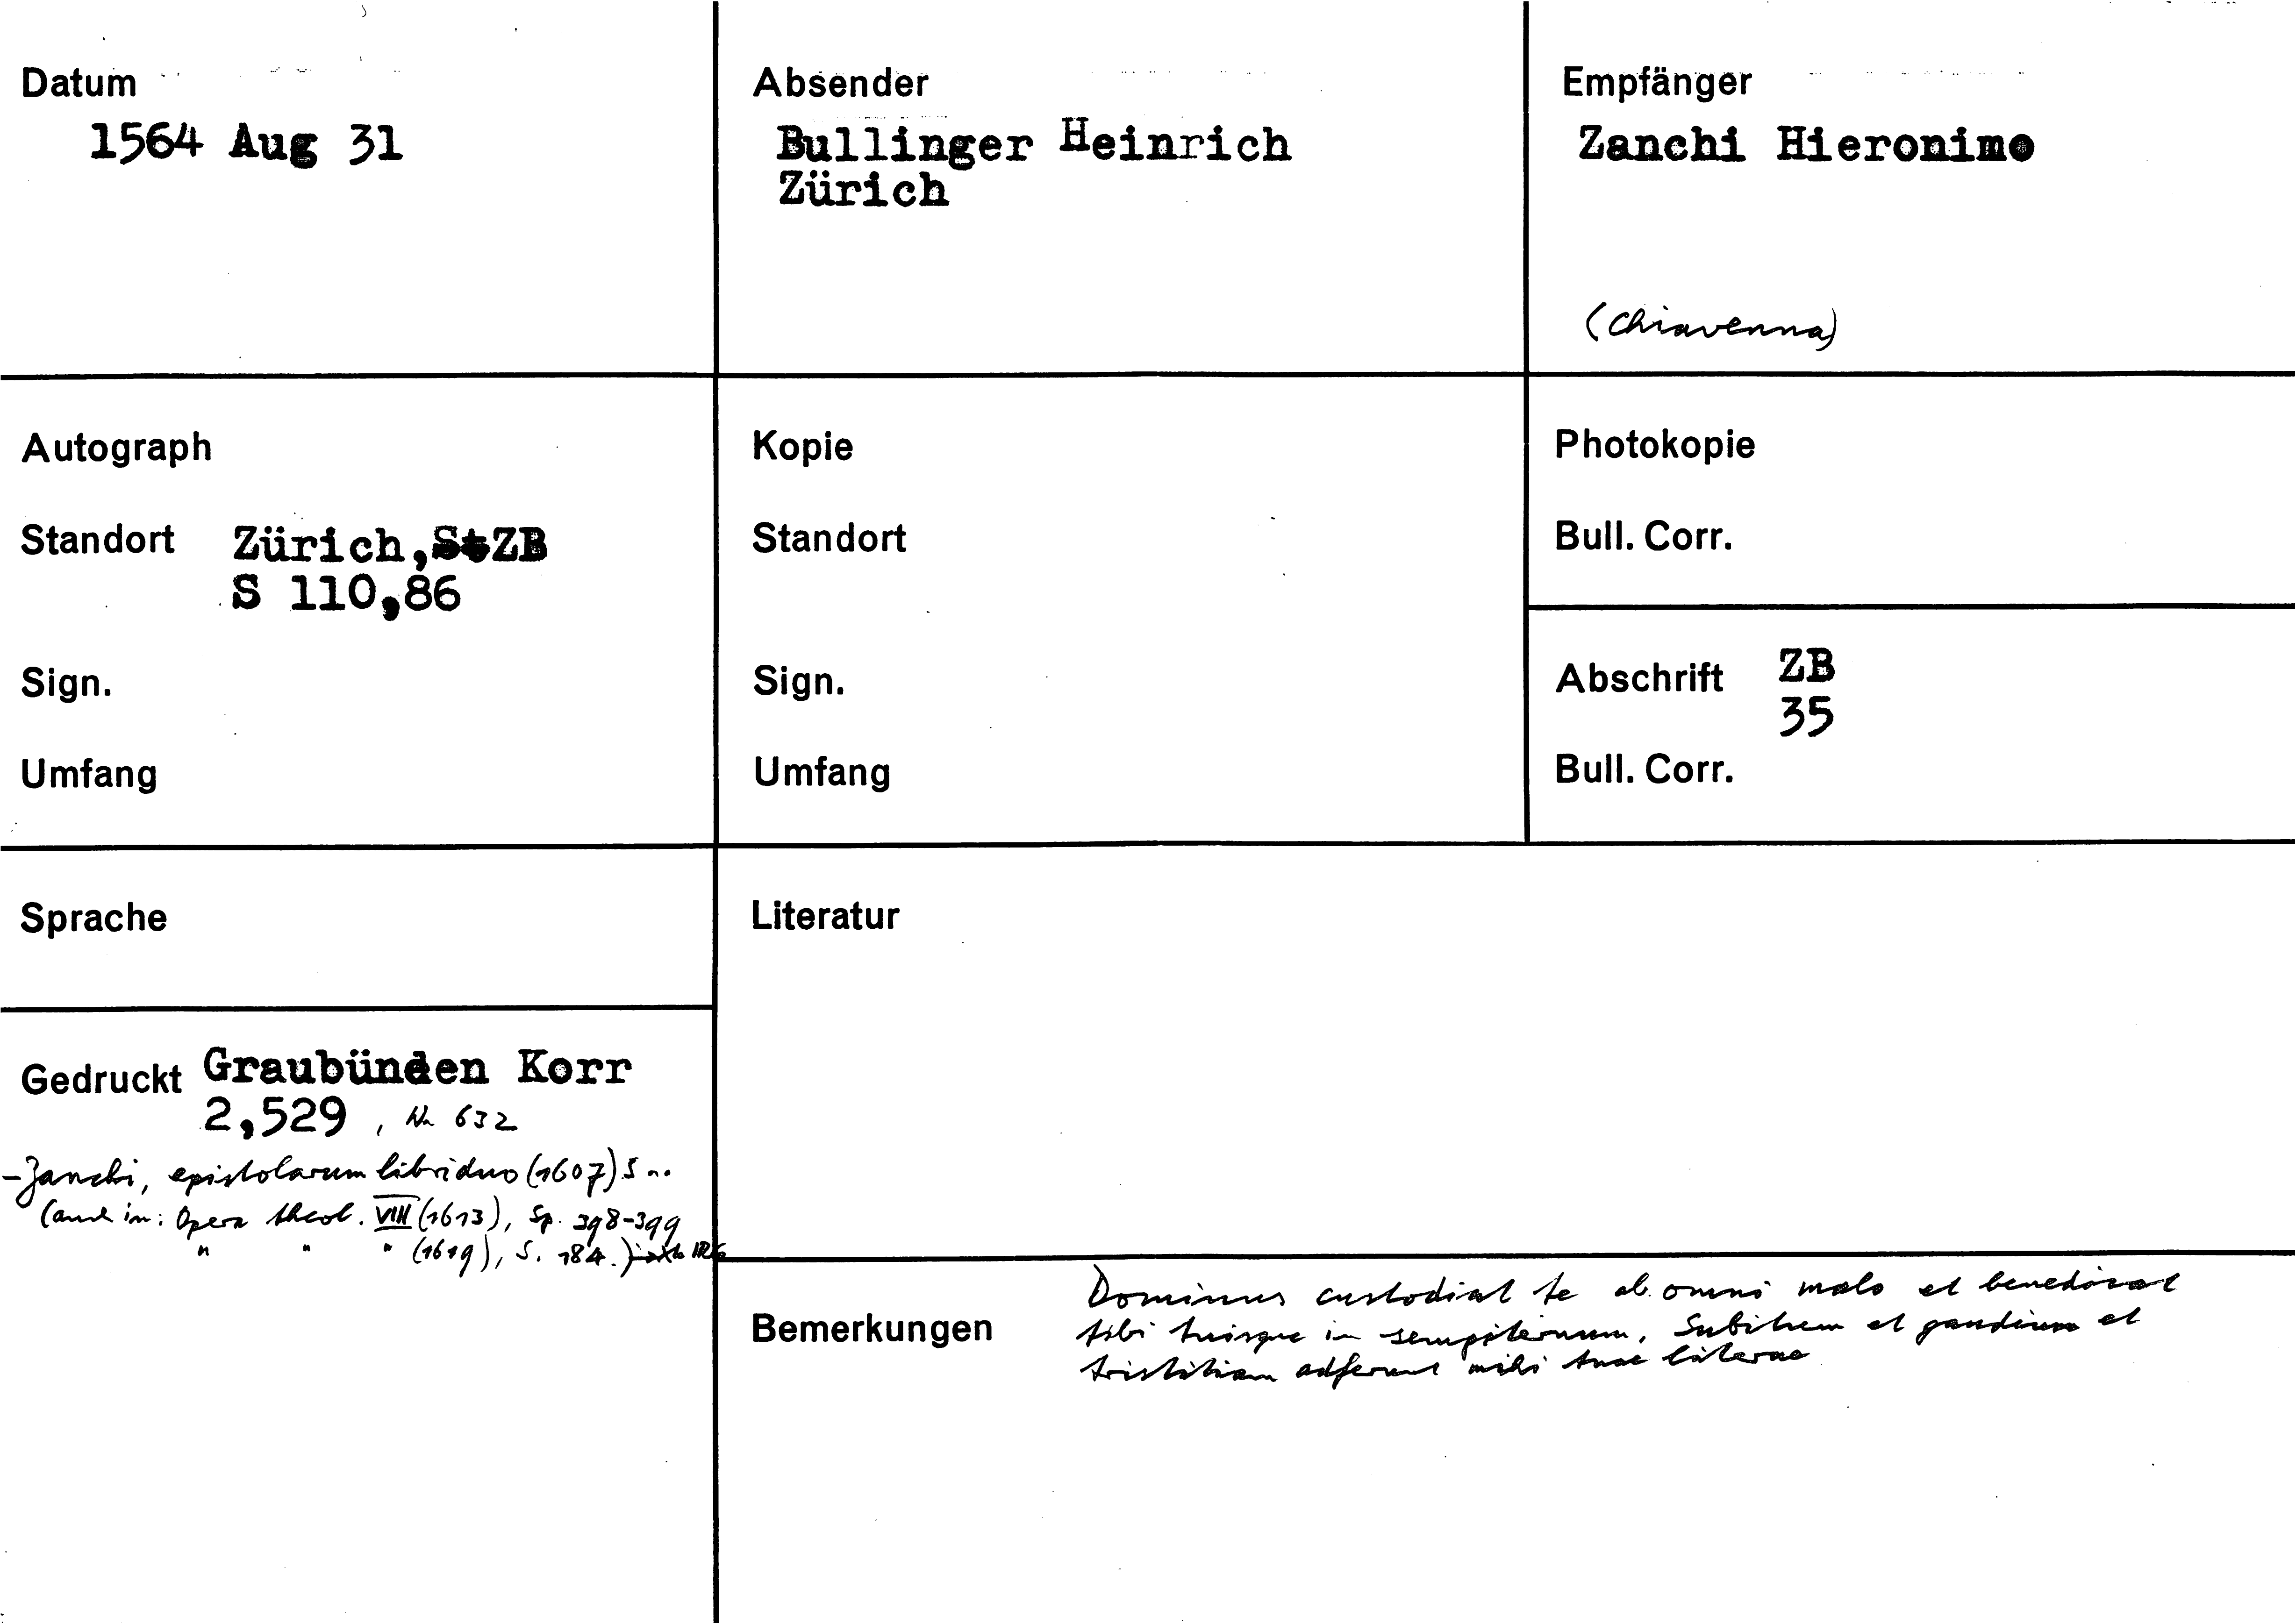 Datum
1564 Aug 31
Absender
Bullinger Heinrich
Zürich
Empfänger
Zanchi Hieronimo
(Chiavenna)
Autograph
Standort Zürich, ZB
S 110,86
Sign.
Umfang
Kopie
Standort
Sign.
Umfang
Photokopie
Bull. Corr.
Abschrift ZB
35
Bull. Corr.
Sprache
Literatur
Gedruckt Graubünden Korr
2,529, Nr 632
- Zanchi, epistolarum libri duo (1607) S
(auch in: Opera theol. VIII (1613), Sp. 398-399
" " " (1619), S. 184.)
Bemerkungen
Dominus custodiat te ab omni malo et benedicat
tibi tuisque in sempiternum. Subitrem et gaudium et
tristitiam adferunt mihi tuae literae